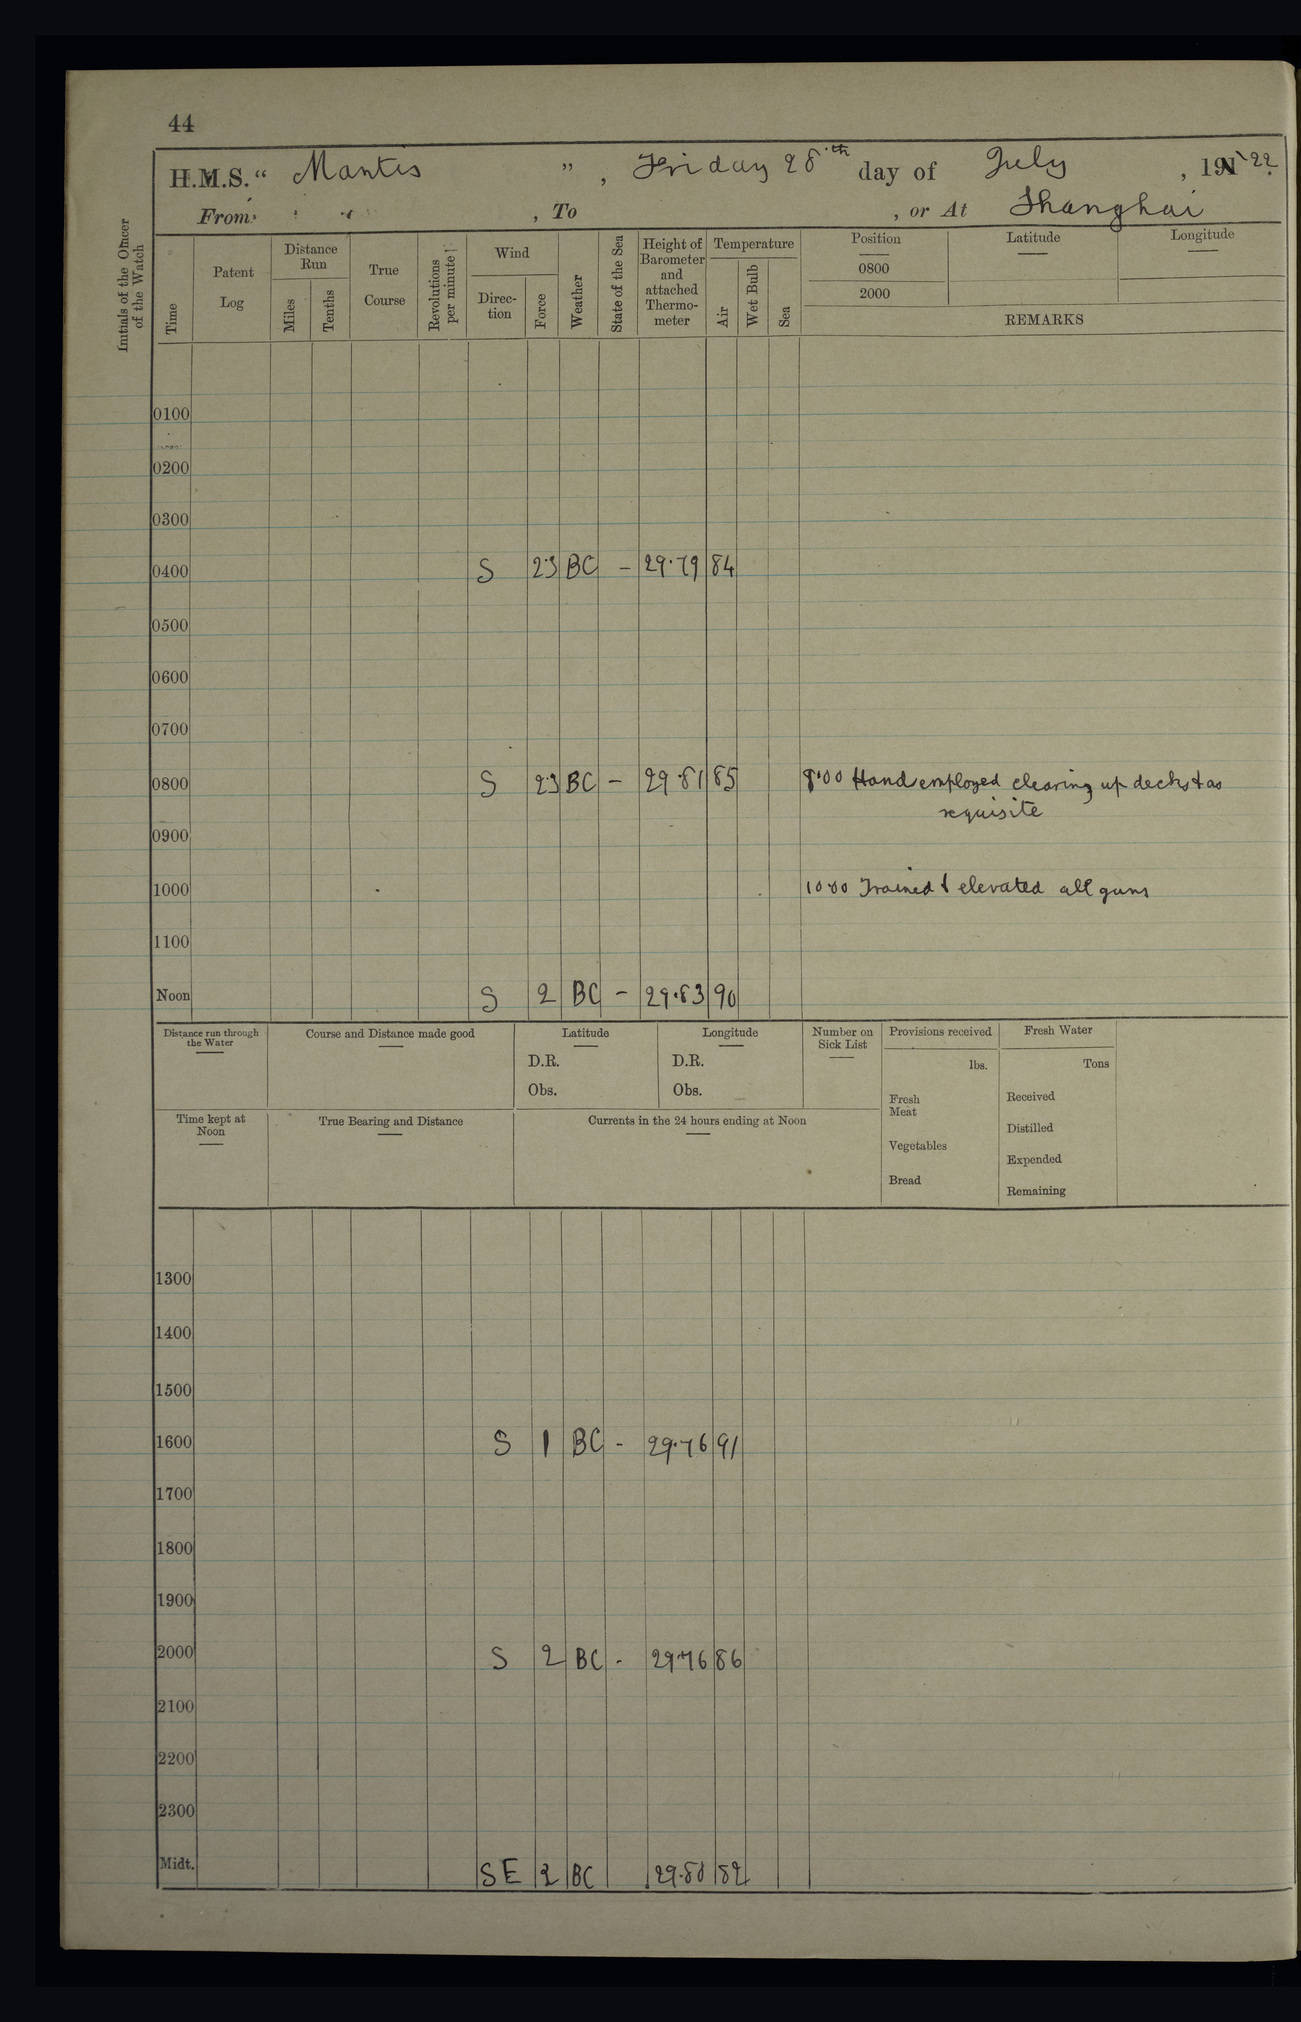 44
H.M.S. “ Mantis ” , Friday 28th day of July , 1922
From , To , or At Shanghai
Initials of the Officer of the Watch
Time
Patent Log
Distance Run
Miles
Tenths
True Course
Revolutions per minute
Wind
Direc-tion
Force
Weather
State of the Sea
Height of Barometer and attached Thermo-meter
Temperature
Air
Wet Bulb
Sea
Position
0800
2000
Latitude
Longitude
REMARKS
0100
0200
0300
0400 S 2·3 BC – 29·79 84
0500
0600
0700
0800 S 2·3 BC – 29·81 85 8·00 Hands employed clearing up decks & as
requisite
0900
1000 10·00 Trained & elevated all guns
1100
Noon S 2 BC – 29·83 90
Distance run through the Water
Course and Distance made good
Latitude
D.R.
Obs.
Longitude
D.R.
Obs.
Number on Sick List
Provisions received
lbs.
Fresh Meat
Vegetables
Bread
Fresh Water
Tons
Received
Distilled
Expended
Remaining
Time kept at Noon
True Bearing and Distance
Currents in the 24 hours ending at Noon
1300
1400
1500
1600 S 1 BC - 29·76 91
1700
1800
1900
2000 S 2 BC - 29·76 86
2100
2200
2300
Midt. SE 2 BC 29·80 82